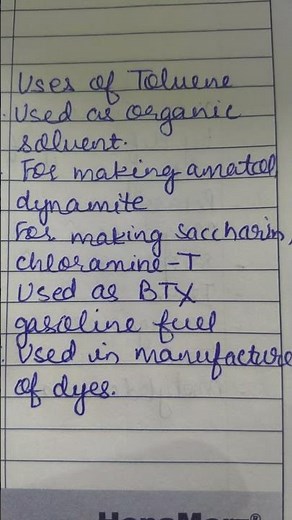 Uses of Toluene
. Used as organic
solvent.
For making amatol
dynamite
For making saccharin,
chloramine-T
Used as BTX
gasoline fuel
. Used in manufacture
of dyes.